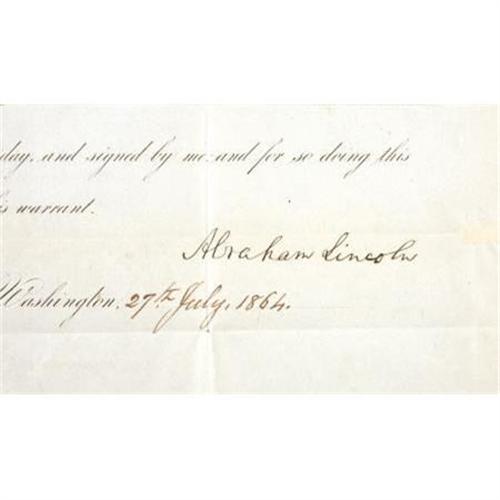 day, and signed by me: and for so doing this
is warrant.
Abraham Lincoln
Washington, 27th July, 1864.